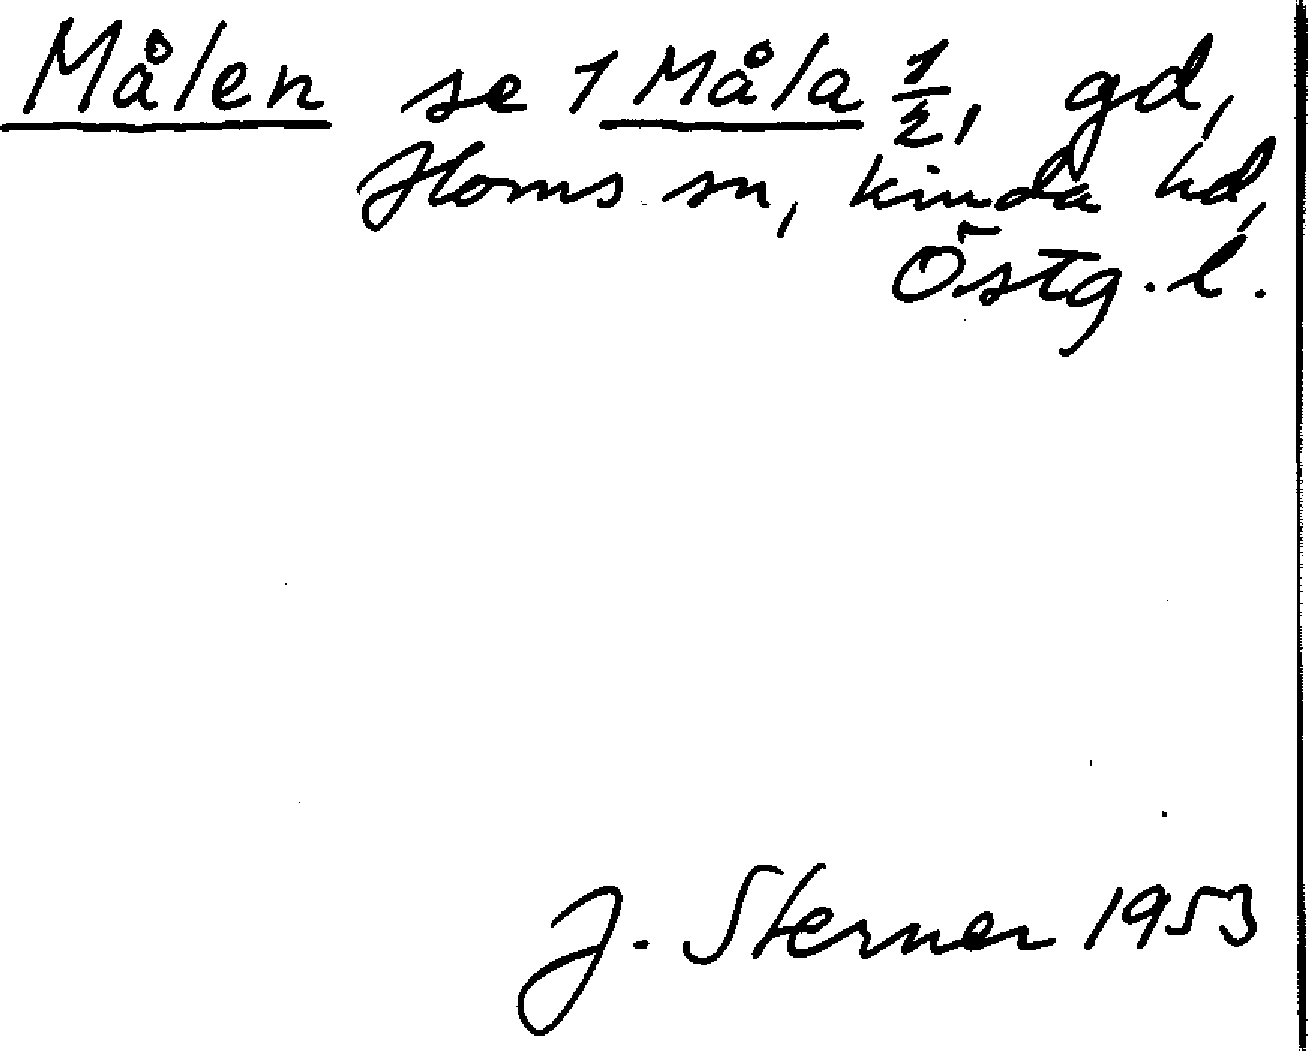 Målen se 1 Måla 1/2, gd,
Horns sn, Kinda hd,
Östg. l.
J. Sterner 1953